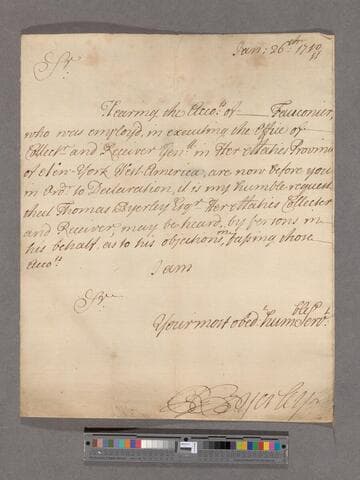 Jan: 26th. 1710/11
Sr.
Hearing the Acco.ts of Fauconier,
who was employ'd, in executing the Office of
Collectr. and Receiver Genll. in Her Maties Province
of New-York West-America, are now before you
in Ordr. to Declaration, it is my humble request
that Thomas Byerley Esqr. Her Maties Collecter
and Receiver, may be heard, by persons in
his behalf, as to his objections, passing those
Acco.ts
I am
Sr.
Your most obedt. humble Servt.
Byerley